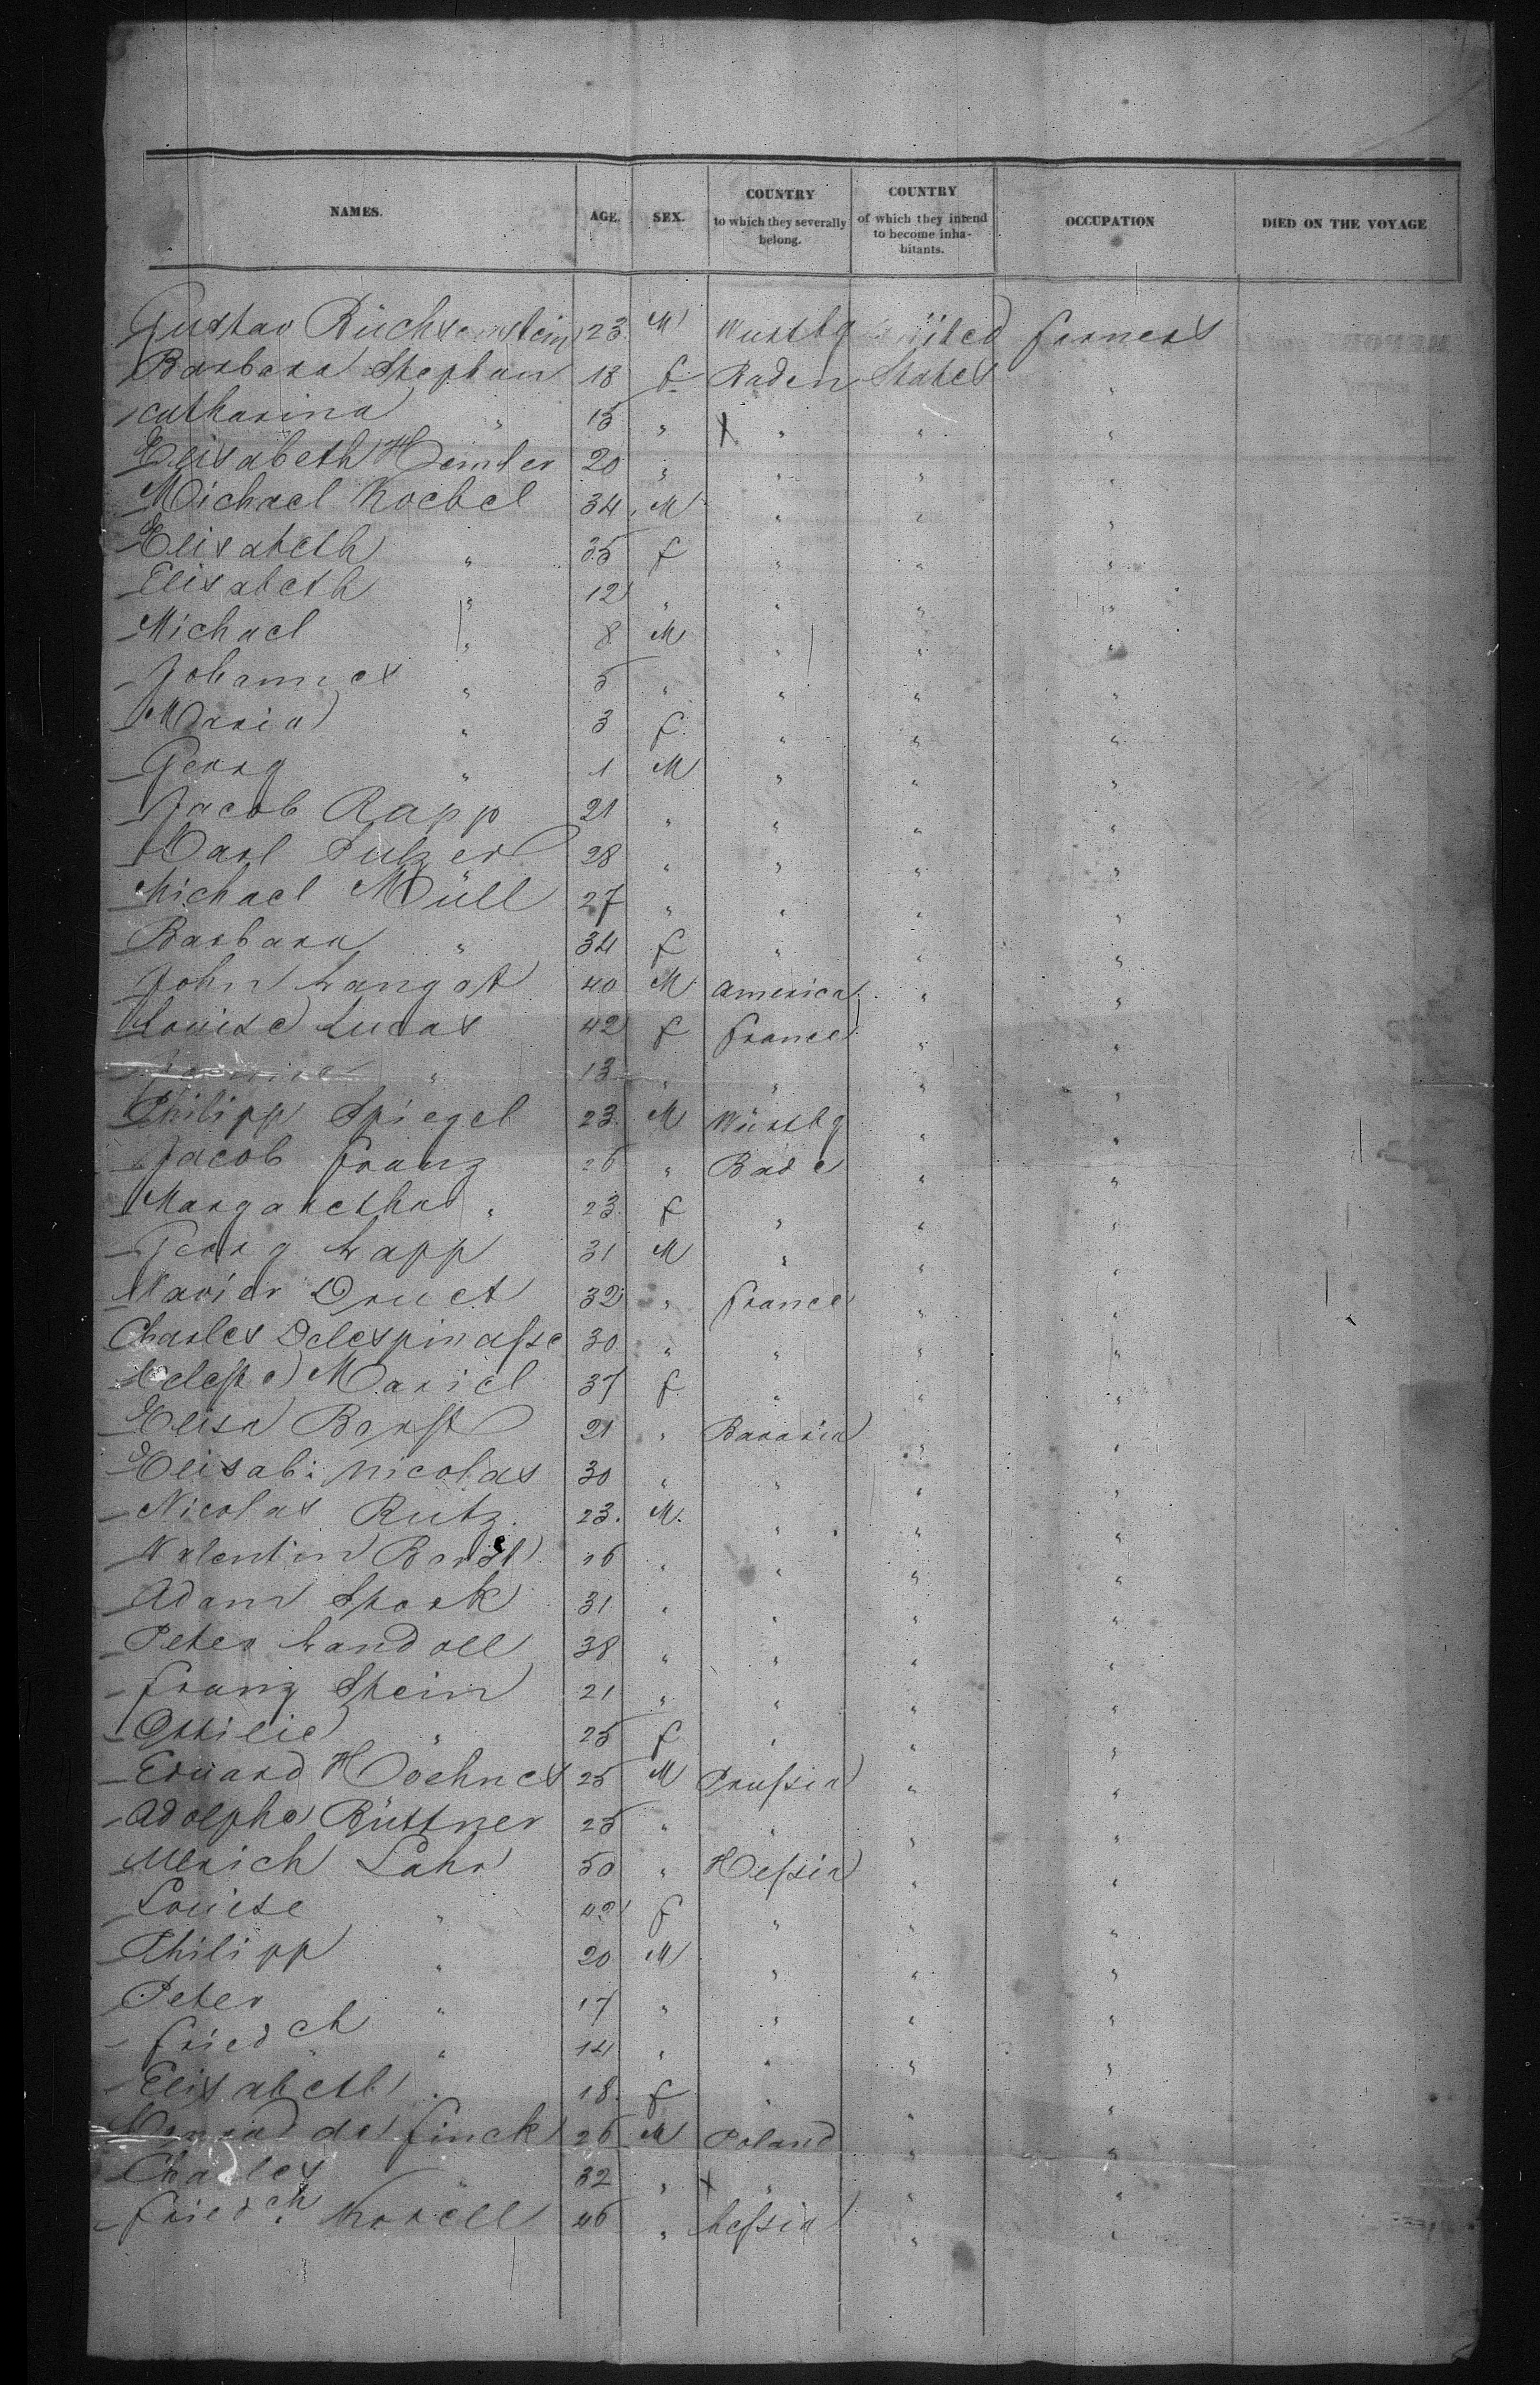 NAMES. AGE. SEX. COUNTRY to which they severally belong. COUNTRY of which they intend to become inhabitants. OCCUPATION DIED ON THE VOYAGE
Gustav 23 M Wurtbg United farmers
Barbara Stephan 18 f Baden States "
Catharina " 15 " " " "
Elisabeth 20 " " " "
Michael Koebel 34 M " " "
Elisabeth " 35 f " " "
Elisabeth " 12 " " " "
Michael " 8 M " " "
Johannes " 5 " " " "
Maria " 3 f " " "
Georg " 1 M " " "
Jacob Rapp 21 " " " "
Karl Sulzer 28 " " " "
Michael Müll 27 " " " "
Barbara " 34 f " " "
John Langat 40 M America " "
Louise Lucas 42 f france " "
" 13 " " " "
Philipp Spiegel 23 M Würtbg " "
Jacob franz 26 " Bade " "
Margaretha " 23 f " " "
Georg Lapp 31 M " " "
Xavier Druet 32 " france " "
Charles Delespinasse 30 " " " "
Celeste Mariel 37 f " " "
Elisa Berst 21 " Bavaria " "
Elisab: Nicolas 30 " " " "
Nicolas Rutz 23. M. " " "
Valentin " " " "
Adam Spark 31 " " " "
Peter Landoll 38 " " " "
franz Stein 21 " " " "
Ottilie " 25 f " " "
Eduard Hoehnes 25 M Prussia " "
Adolphe Büttner 25 " " " "
Ulrich Lahr 50 " Hessia " "
Louise " 42 f " " "
Philipp " 20 M " " "
Peter " 17 " " " "
friedch " 14 " " " "
Elisabeth " 18. f " " "
de finck 26 M Poland " "
Charles " 32 " X " " "
friedch Korell 46 " hessia " "